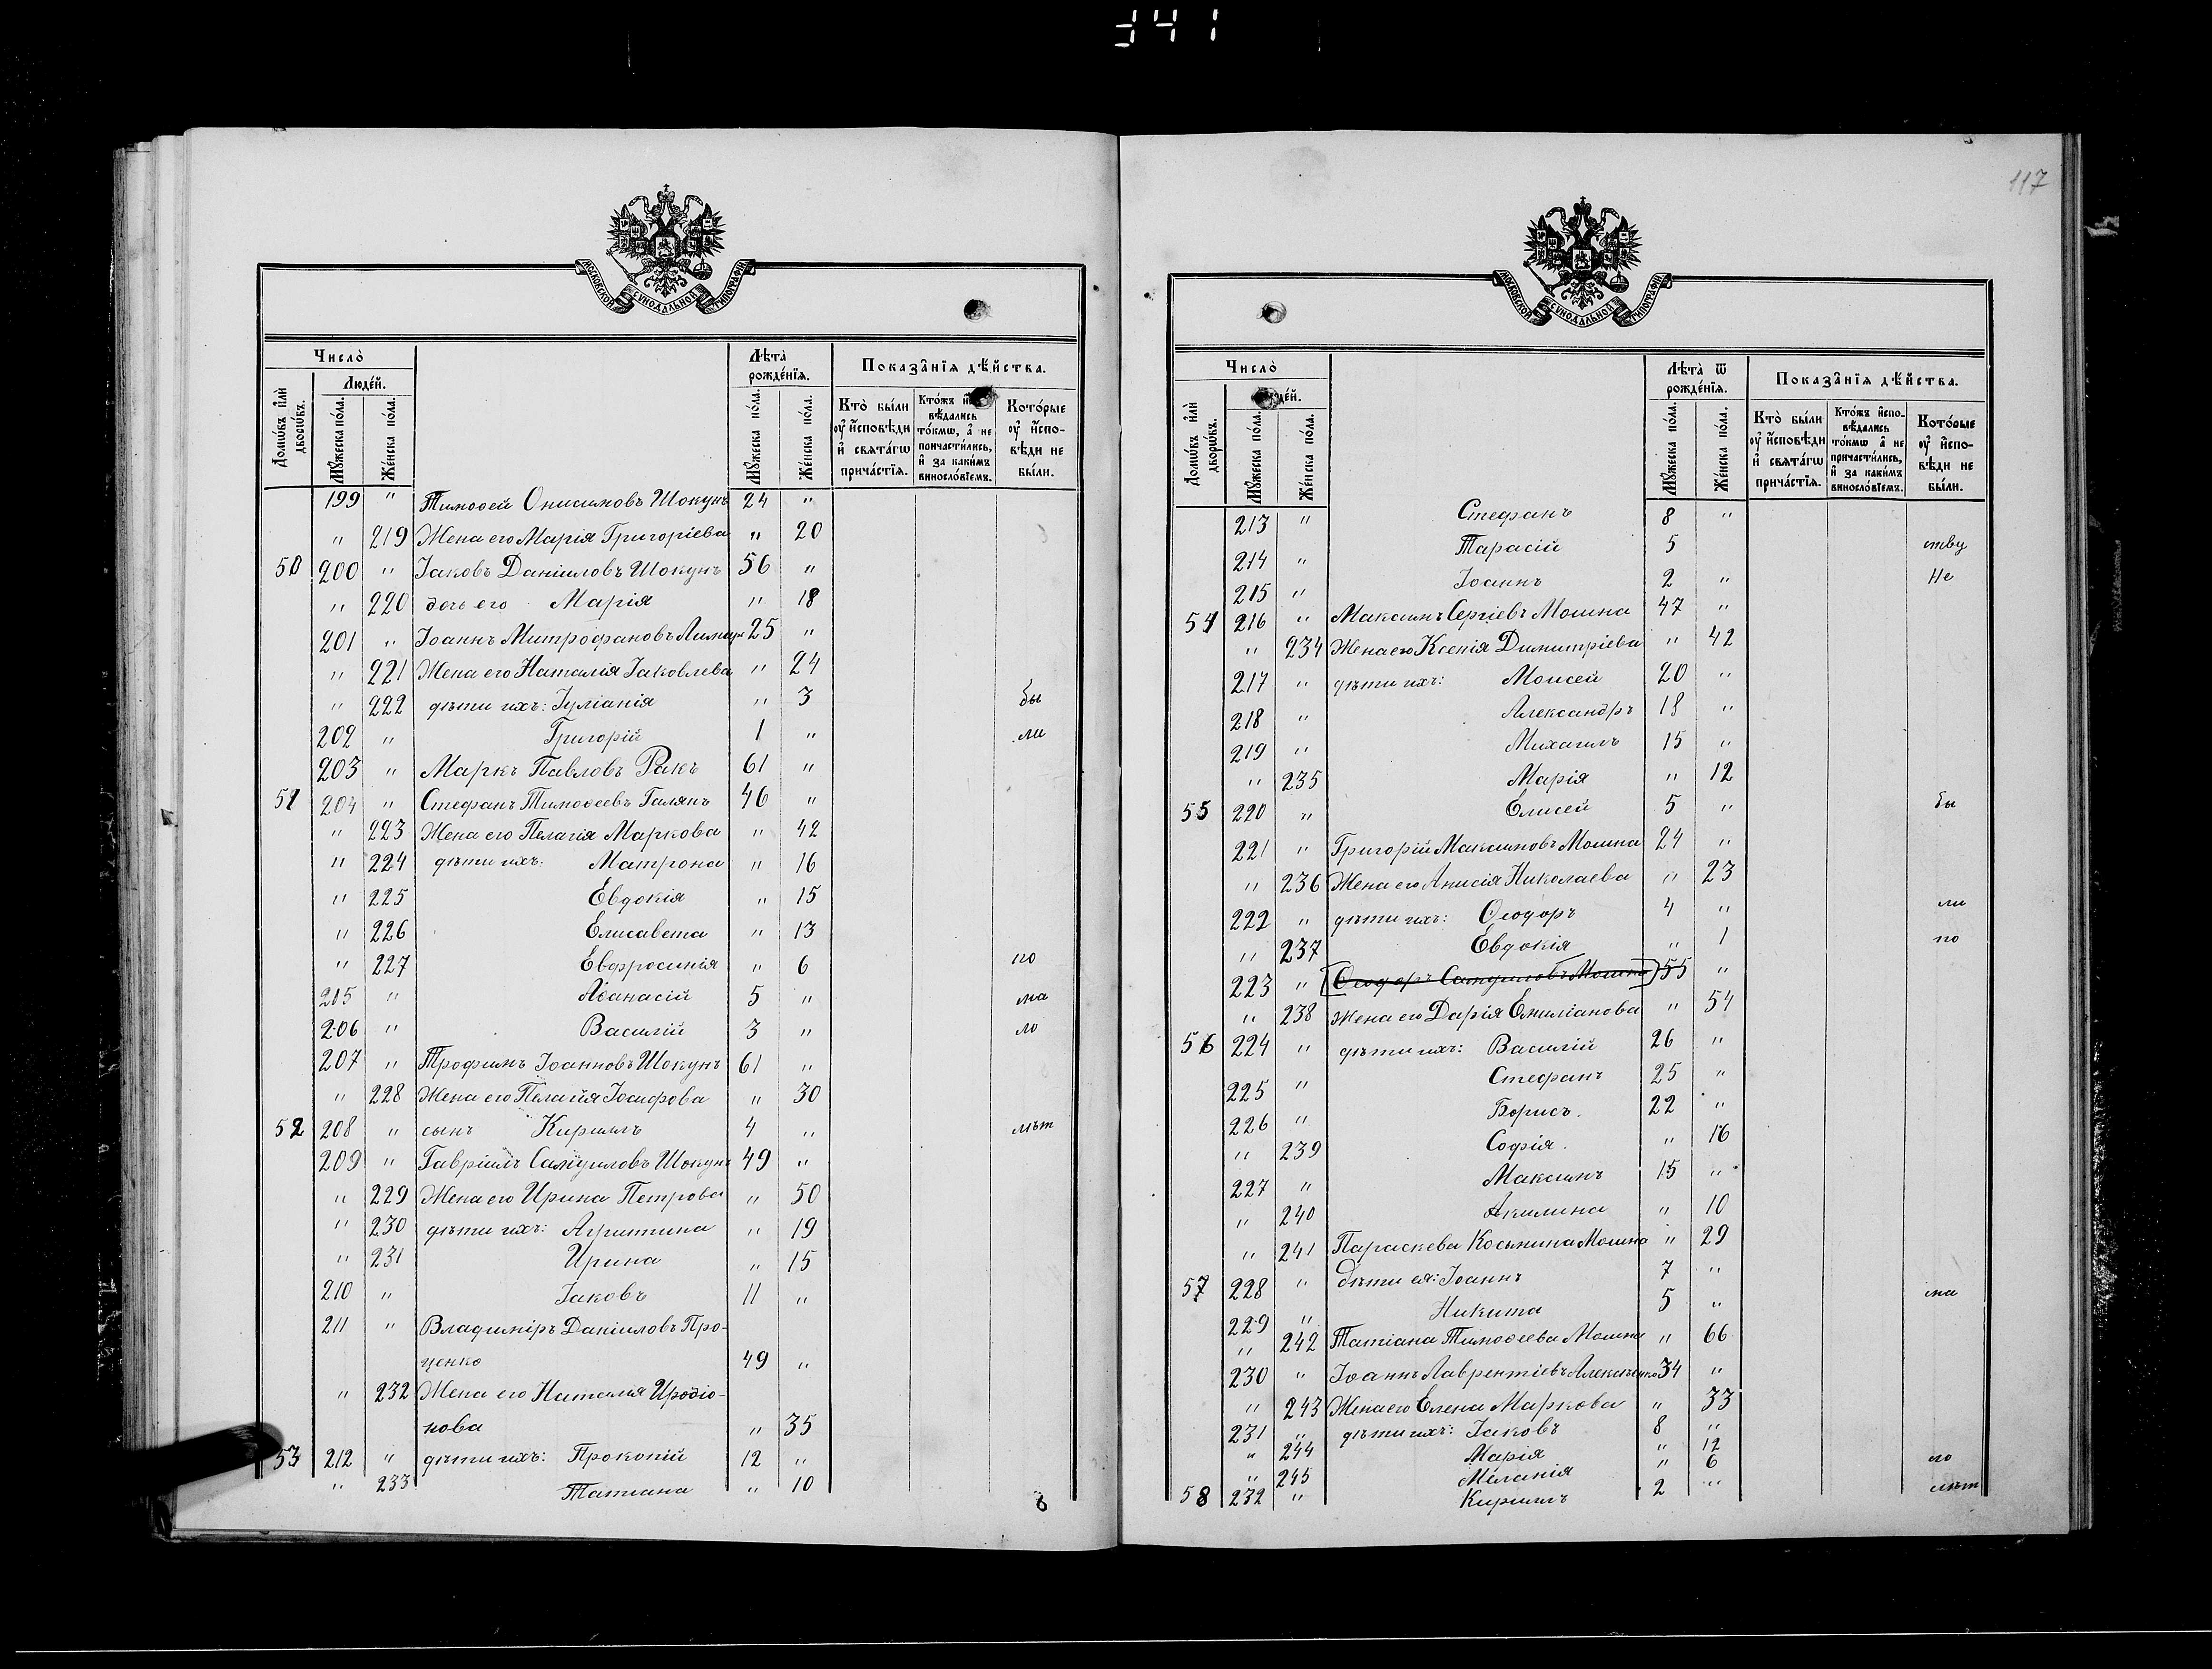 341
117
МОСКОВСКОЙ СѴНОДАЛЬНОЙ ТИПОГРАФІИ
Число̀
Домѡ́въ и҆лѝ дворѡ́въ.
Люде́й.
Мꙋ́жеска по́ла.
Же́нска по́ла.
Лѣта̀ рожде́нїѧ.
Мꙋ́жеска по́ла.
Же́нска по́ла.
Показа̑нїѧ дѣ́йства.
Кто̀ бы́ли ᲂу҆ и҆сповѣди и҆ свѧта́гѡ прича́стїѧ.
Кто́жъ и҆сповѣдались то́кмѡ, а҆ не причасти́лись, и҆ за каки́мъ винослові́емъ.
Кото́рые ᲂу҆ и҆сповѣди не бы́ли.
199 " Тимоѳей Онисимовъ Шокунъ 24 "
" 219 Жена его Марія Григоріева " 20
50 200 " Іаковъ Даніиловъ Шокунъ 56 "
" 220 дочь его Марія " 18
201 " Іоаннъ Митрофановъ 25 "
" 221 Жена его Наталія Іаковлева " 24
" 222 дѣти ихъ: Іуліанія " 3 бы
202 " Григорій 1 " ли
203 " Маркъ Павловъ Ракъ 61 "
51 204 " Стефанъ Тимоѳеевъ Галянъ 46 "
" 223 Жена его Пелагія Маркова " 42
" 224 дѣти ихъ: Матрона " 16
" 225 Евдокія " 15
" 226 Елисавета " 13
" 227 Евфросинія " 6 по
205 " Аѳанасій 5 " ма
206 " Василій 3 " ло
207 " Трофимъ Іоанновъ Шокунъ 61 "
" 228 Жена его Пелагія Іосифова " 30
52 208 " сынъ Кириллъ 4 " лѣт
209 " Гавріилъ Самуиловъ Шокунъ 49 "
" 229 Жена его Ирина Петрова " 50
" 230 дѣти ихъ: Агрипина " 19
" 231 Ирина " 15
210 " Іаковъ 11 "
211 " Владиміръ Даніиловъ Про-
ценко 49 "
" 232 Жена его Наталія Иродіо-
нова " 35
53 212 " дѣти ихъ: Прокопій 12 "
" 233 Татіана " 10
МОСКОВСКОЙ СѴНОДАЛЬНОЙ ТИПОГРАФІИ
Число̀
Домѡ́въ и҆лѝ дворѡ́въ.
Люде́й.
Мꙋ́жеска по́ла.
Же́нска по́ла.
Лѣта̀ ѿ рожде́нїѧ.
Мꙋ́жеска по́ла.
Же́нска по́ла.
Показа̑нїѧ дѣ́йства.
Кто̀ бы́ли ᲂу҆ и҆сповѣди и҆ свѧта́гѡ прича́стїѧ.
Кто́жъ и҆сповѣдались то́кмѡ а҆ не причасти́лись, и҆ за каки́мъ винослові́емъ.
Кото́рые ᲂу҆ и҆сповѣди не бы́ли.
213 " Стефанъ 8 "
214 " Тарасій 5 ству
215 " Іоаннъ 2 " Не
54 216 " Максимъ Сергіевъ Мошна 47 "
" 234 Жена его Ксенія Димитріева " 42
217 " дѣти ихъ: Моисей 20 "
218 " Александръ 18 "
219 " Михаилъ 15 "
" 235 Марія " 12
55 220 " Елисей 5 " бы
221 " Григорій Максимовъ Мошна 24 "
" 236 Жена его Анисія Николаева " 23
222 " дѣти ихъ: Ѳеодоръ 4 " ли
" 237 Евдокія " 1 по
223 " Ѳеодоръ Самуиловъ Мошна 55 "
" 238 Жена его Дарія Емиліанова " 54
56 224 " дѣти ихъ: Василій 26 "
225 " Стефанъ 25 "
226 " Борисъ. 22 "
" 239 Софія. " 16
227 " Максимъ 15 "
" 240 Акилина " 10
" 241 Параскева Косьмина Мошна " 29
57 228 " дѣти ея: Іоаннъ 7 " ма
229 " Никита 5 "
" 242 Татіана Тимоѳеева Мошна " 66
230 " Іоаннъ Лаврентіевъ 34 "
" 243 Жена его Елена Маркова " 33
231 " дѣти ихъ: Іаковъ 8 "
" 244 Марія " 12
" 245 Меланія " 6 ло
58 232 " Кириллъ 2 " лѣт